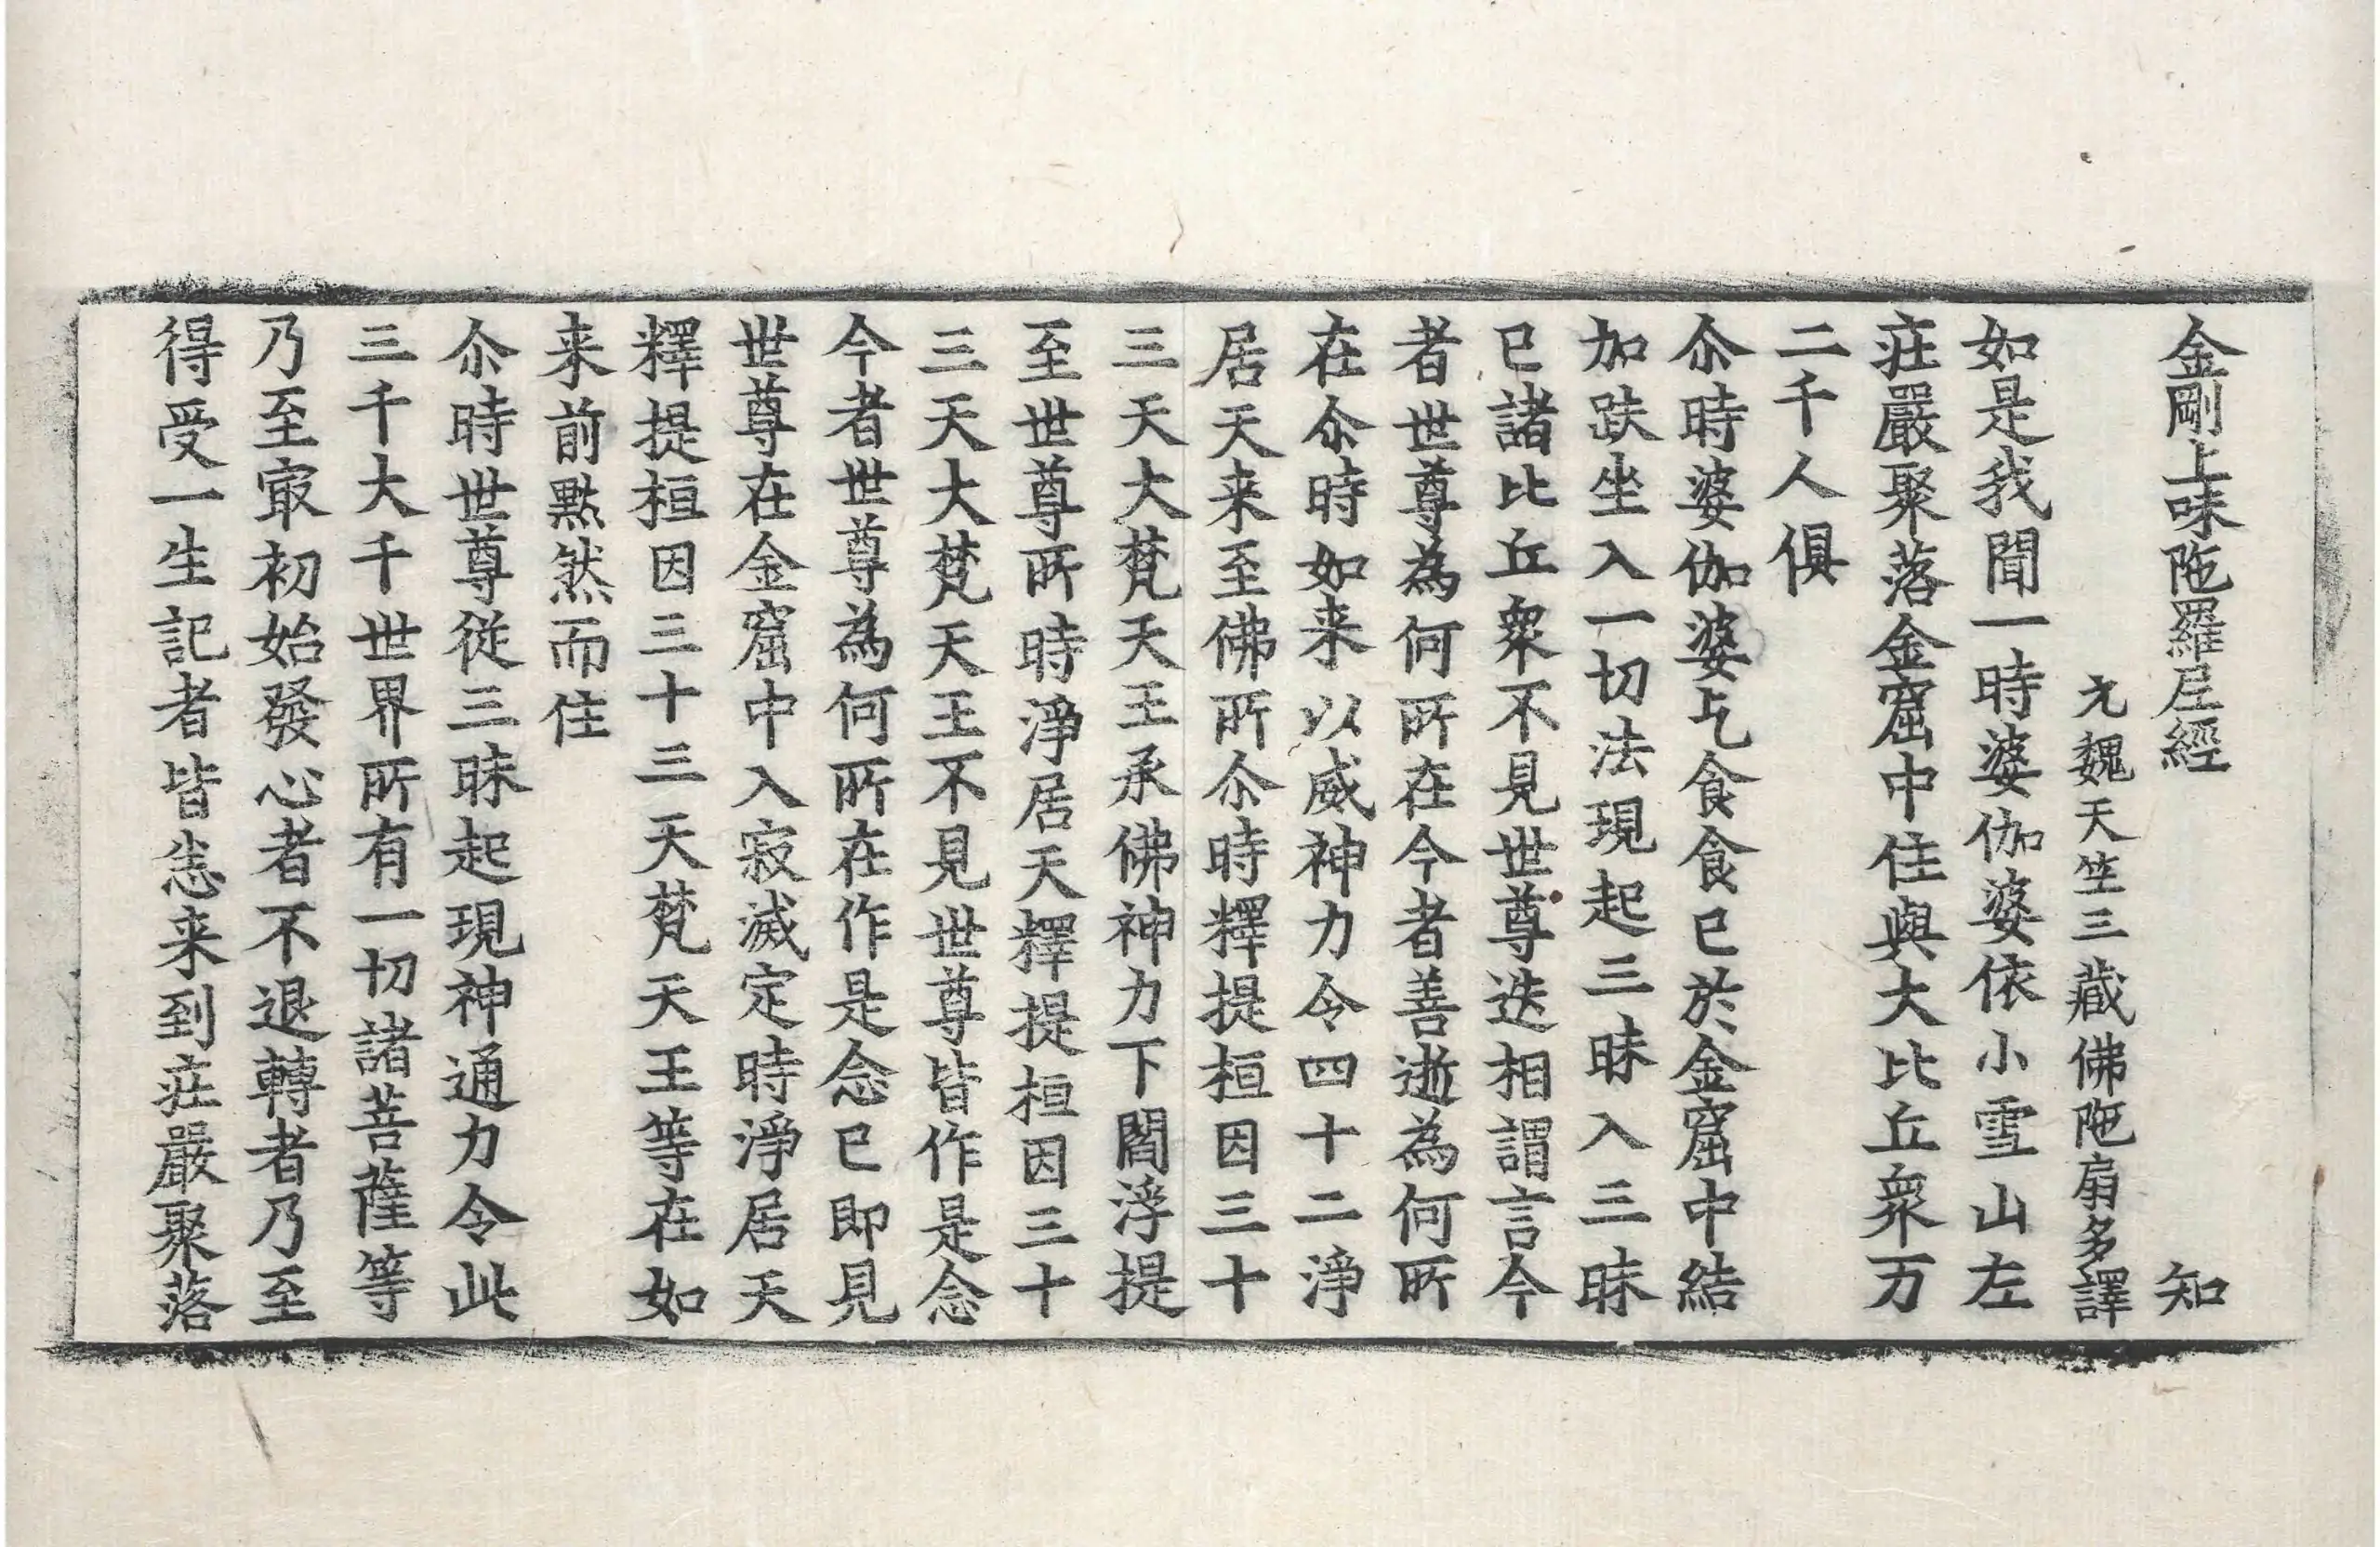 金剛上味陁羅尼經　知
元魏天竺三藏佛陁扇多譯
如是我聞一時婆伽婆依小雪山左
庄嚴聚落金窟中住與大比丘衆万
二千人俱
尒時婆伽婆乞食食已於金窟中結
加趺坐入一切法現起三昧入三昧
已諸比丘衆不見世尊迭相謂言今
者世尊為何所在今者善逝為何所
在尒時如来以威神力令四十二淨
居天来至佛所尒時釋提桓因三十
三天大梵天王承佛神力下閻浮提
至世尊所時淨居天釋提桓因三十
三天大梵天王不見世尊皆作是念
今者世尊為何所在作是念已即見
世尊在金窟中入寂滅定時淨居天
釋提桓因三十三天梵天王等在如
来前默然而住
尒時世尊從三昧起現神通力令此
三千大千世界所有一切諸菩薩等
乃至㝡初始發心者不退轉者乃至
得受一生記者皆悉来到庄嚴聚落